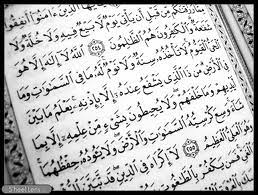 ٱلَّذِينَ ءَامَنُوٓا۟ أَنفِقُوا۟
رَزَقْنَٰكُم مِّن قَبْلِ أَن يَأْتِىَ يَوْمٌ لَّا بَيْعٌ فِيهِ وَلَا خُلَّةٌ وَلَا
شَفَٰعَةٌ وَٱلْكَٰفِرُونَ هُمُ ٱلظَّٰلِمُونَ ٢٥٤ ٱللَّهُ لَآ إِلَٰهَ إِلَّا هُوَ
ٱلْحَىُّ ٱلْقَيُّومُ لَا تَأْخُذُهُۥ سِنَةٌ وَلَا نَوْمٌ لَّهُۥ مَا فِى ٱلسَّمَٰوَٰتِ وَمَا
فِى ٱلْأَرْضِ مَن ذَا ٱلَّذِى يَشْفَعُ عِندَهُۥٓ إِلَّا بِإِذْنِهِۦ يَعْلَمُ مَا بَيْنَ
أَيْدِيهِمْ وَمَا خَلْفَهُمْ وَلَا يُحِيطُونَ بِشَىْءٍ مِّنْ عِلْمِهِۦٓ إِلَّا بِمَا
شَآءَ وَسِعَ كُرْسِيُّهُ ٱلسَّمَٰوَٰتِ وَٱلْأَرْضَ وَلَا يَـُٔودُهُۥ حِفْظُهُمَا
وَهُوَ ٱلْعَلِىُّ ٱلْعَظِيمُ ٢٥٥ لَآ إِكْرَاهَ فِى ٱلدِّينِ قَد
ٱلْغَىِّ فَمَن يَكْفُرْ بِٱلطَّٰغُوتِ